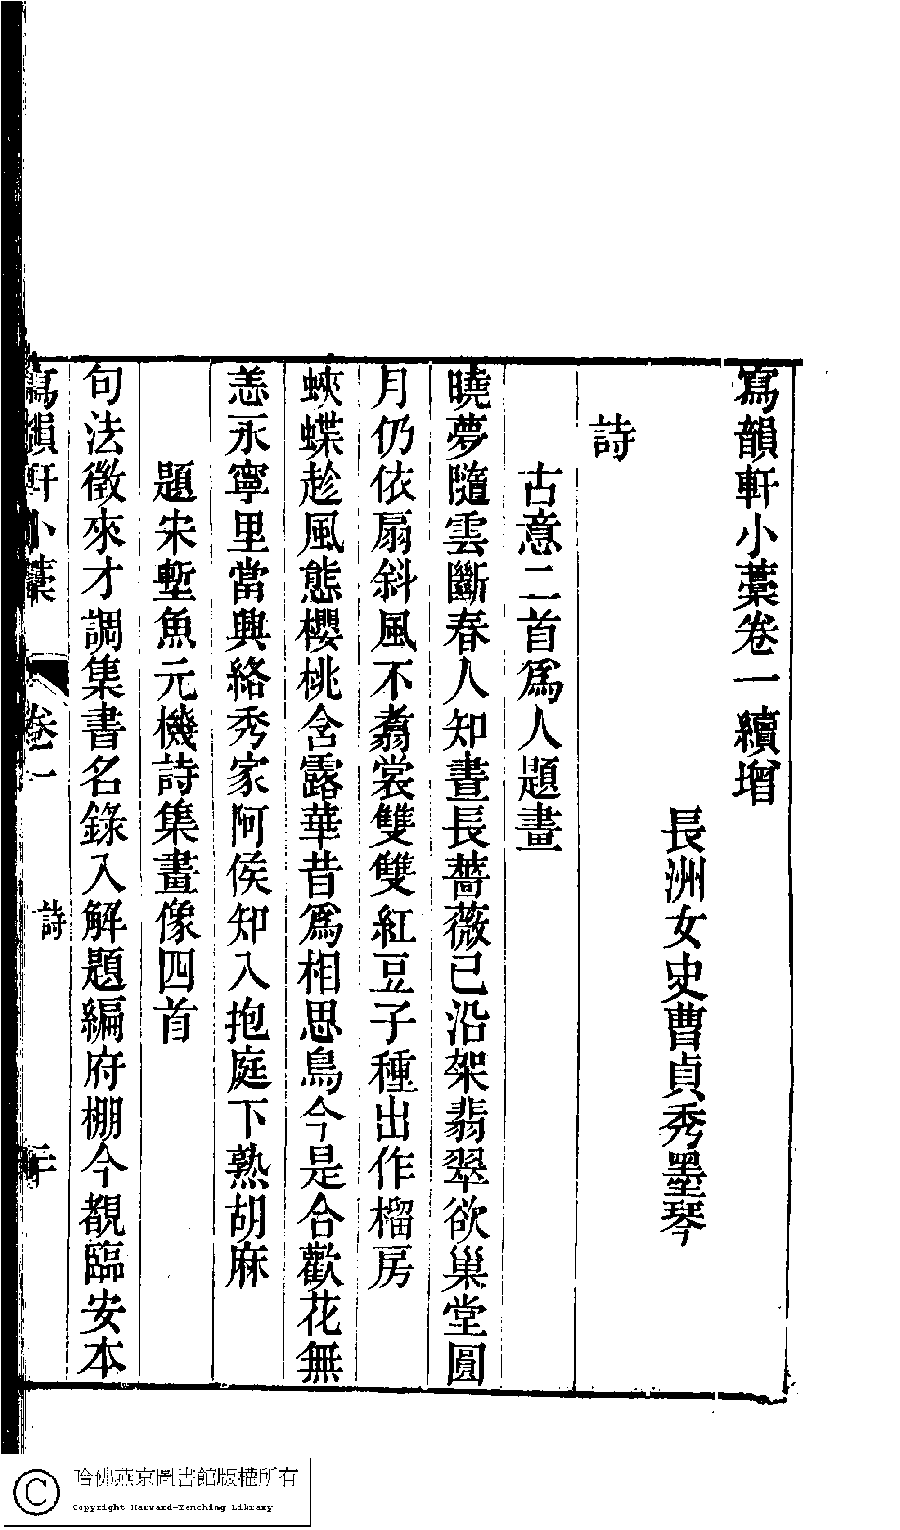 寫韻軒小藁卷一續增
長洲女史曹貞秀墨琴
詩
古意二首爲人題畫
曉夢隨雲斷春人知晝長薔薇已沿架翡翠欲巢堂圓
月仍依扇斜風不翥裳雙雙紅豆子種出作榴房
蛺蝶趁風態櫻桃含露華昔爲相思鳥今是合歡花無
恙永寧里當興絡秀家阿侯知入抱庭下熟胡麻
題宋塹魚元機詩集畫像四首
句法徵來才調集書名錄入解題編府棚今覩臨安本
寫韻軒小藁
卷一
詩
二
哈佛燕京圖書館版權所有
Copyright Harvard-Yenching Library